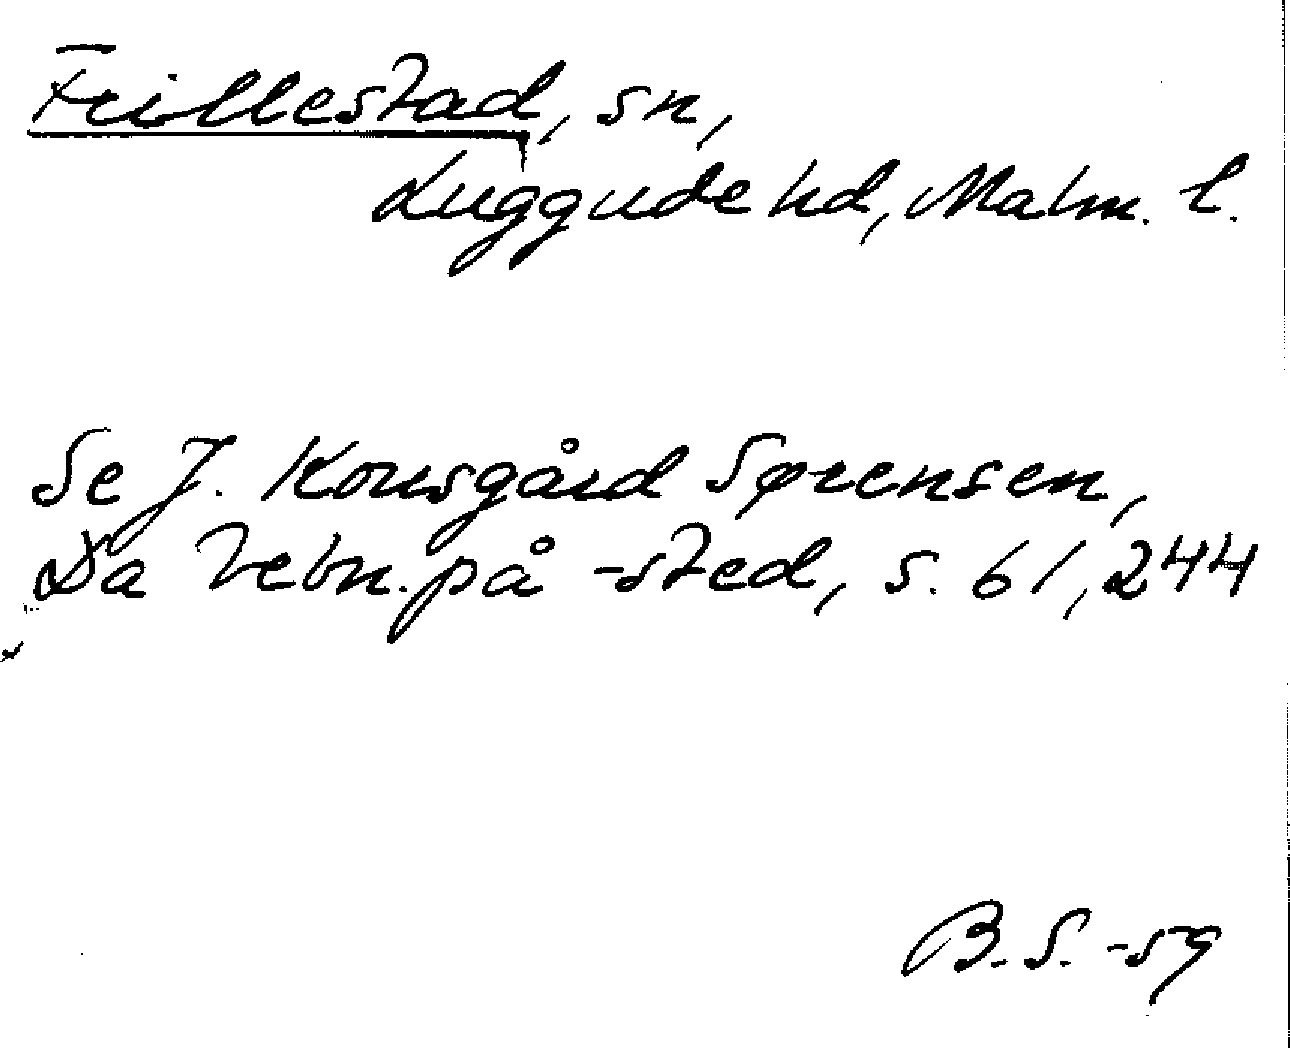 Frillestad, sn,
Luggude hd, Malm. l.
Se J. Kousgård Sørensen,
Da bebn. på -sted, s. 61, 244
B. S. -59